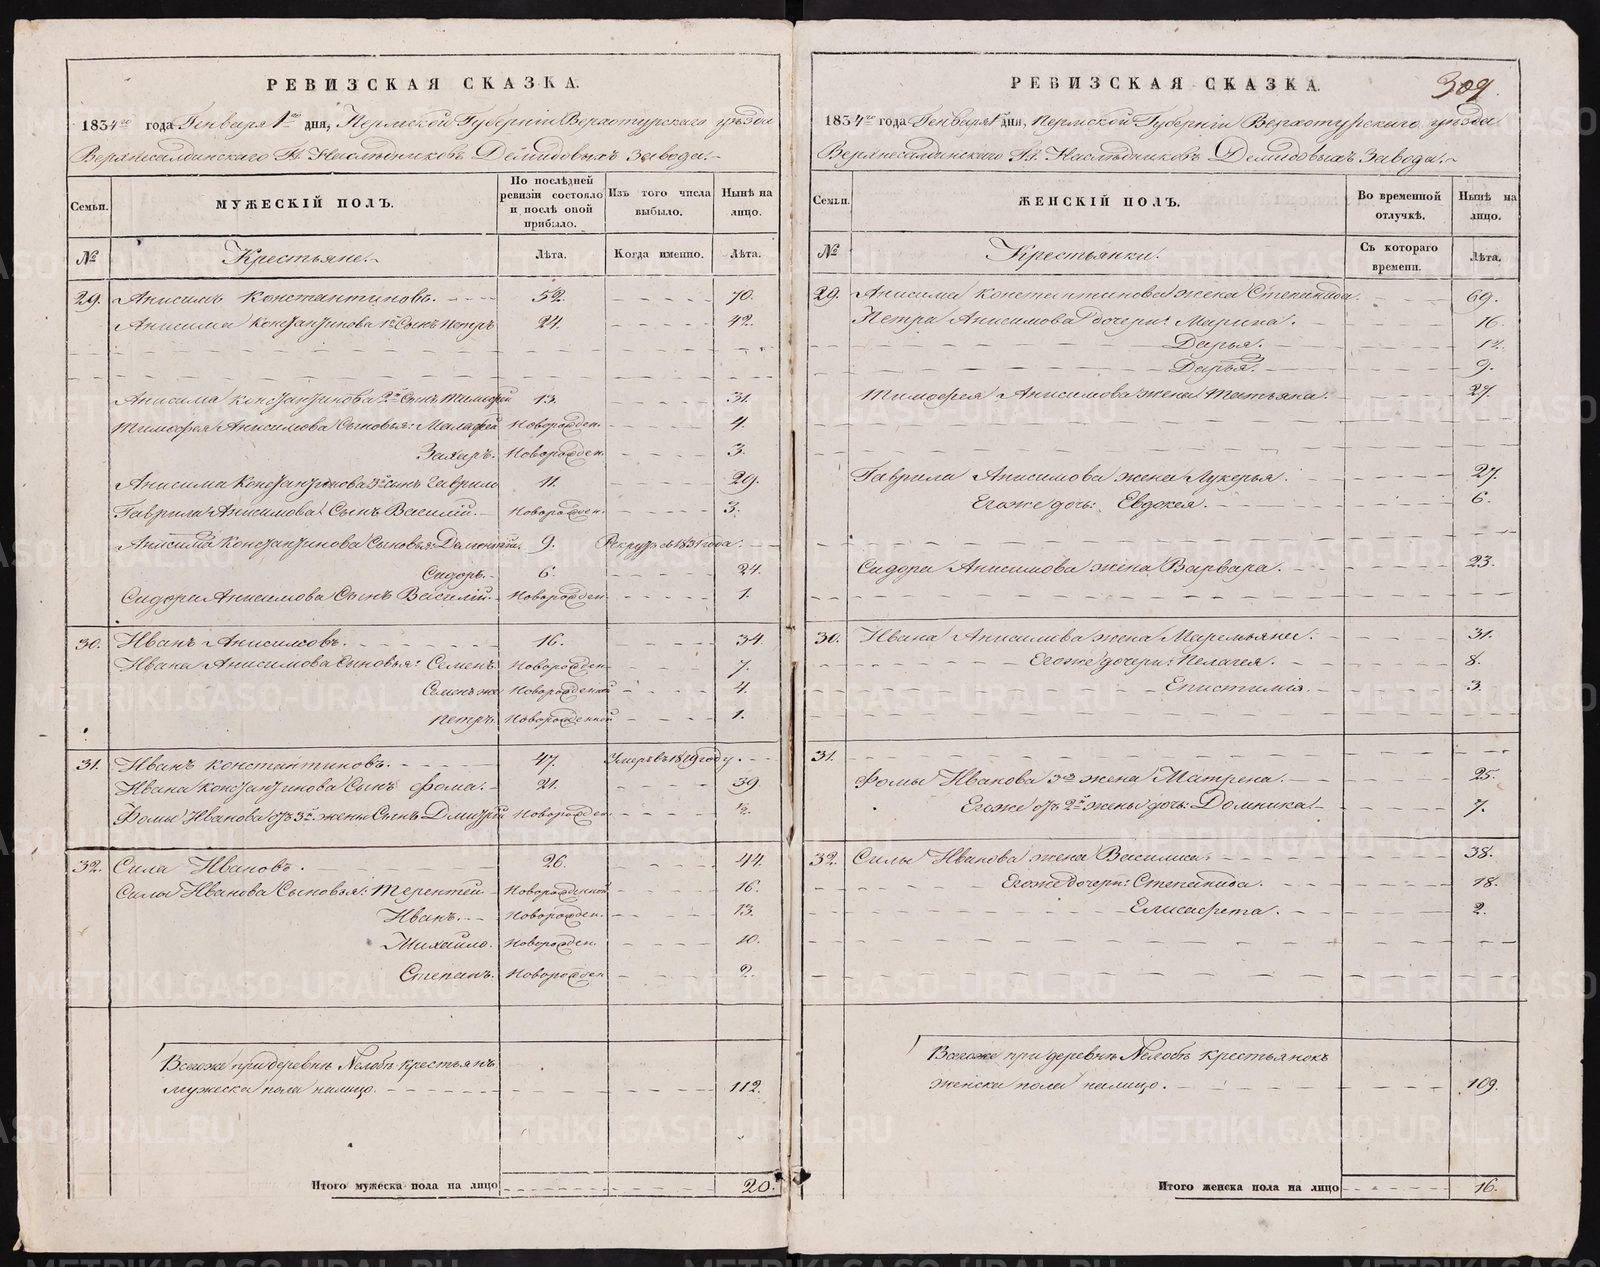 РЕВИЗСКАЯ СКАЗКА.
1834го года Генваря 1го дня, Пермской Губернiи Верхотурскаго уѣзда
Верхнесалдинскаго Гг. Наслѣдниковъ Демидовыхъ завода.
Семьи. МУЖЕСКIЙ ПОЛЪ. По послѣдней ревизiи состояло и послѣ оной прибыло. Изъ того числа выбыло. Нынѣ на лицо.
№ Крестьяне. Лѣта. Когда именно. Лѣта.
29. Анисимъ Константиновъ. 52. 70.
Анисима Константинова 1й Сынъ Петръ 24. 42.
Анисима Константинова 2й Сынъ Тимофей 13. 31.
Тимофея Анисимова Сыновья: Малафей Новорожден. 4.
Захаръ. Новорожден. 3.
Анисима Константинова 3й сынъ Гаврило 11. 29.
Гаврила Анисимова Сынъ Василiй. Новорожден. 3.
Анисима Константинова Сыновья: Дементiй. 9. Рекрутъ въ 1831 года.
Сидоръ. 6. 24.
Сидора Анисимова Сынъ Василiй. Новорожден. 1.
30. Иванъ Анисимовъ. 16. 34
Ивана Анисимова Сыновья: Семенъ. Новорожден 7.
Семенъ же Новорожденной 4.
Петръ. Новорожденной 1.
31. Иванъ Константиновъ. 47. Умеръ въ 1819 году.
Ивана Константинова Сынъ Фома. 21. 39
Фомы Иванова отъ 3й жены Сынъ Дмитрiй Новорожден. ½.
32. Сила Ивановъ. 26. 44.
Силы Иванова Сыновья: Терентей Новорожденной 16.
Иванъ. Новорожден. 13.
Михайло. Новорожден. 10.
Степанъ. Новорожден 2.
Всегоже при деревнѣ Нелобѣ крестьянъ
мужеска пола налицо. 112.
Итого мужеска пола на лицо 20.
309.
РЕВИЗСКАЯ СКАЗКА.
1834го года Генваря 1 дня, Пермской Губернiи Верхотурскаго уѣзда
Верхнесалдинскаго Гг. Наслѣдниковъ Демидовыхъ Завода.
Семьи. ЖЕНСКIЙ ПОЛЪ. Во временной отлучкѣ. Нынѣ на лицо.
№ Крестьянки. Съ котораго времени. Лѣта.
29. Анисима Константинова жена Степанида. 69.
Петра Анисимова дочери: Марина. 16.
Дарья. 12.
Дарья. 9.
Тимофея Анисимова жена Татьяна. 27.
Гаврила Анисимова жена Лукерья. 27.
Егоже дочь: Евдокея. 6.
Сидора Анисимова жена Варвара. 23.
30. Ивана Анисимова жена Маремьяна. 31.
Егоже дочери: Пелагея. 8.
Епистимiя. 3.
31.
Фомы Иванова 3я жена Матрена. 25.
Егоже отъ 2й жены дочь: Домника. 7.
32. Силы Иванова жена Василиса. 38.
Егоже дочери: Степанида. 18.
Елисафета. 2.
Всегоже при деревнѣ Нелобѣ крестьянокъ
женска пола налицо. 109.
Итого женска пола на лицо 16.
METRIKI.GASO-URAL.RU